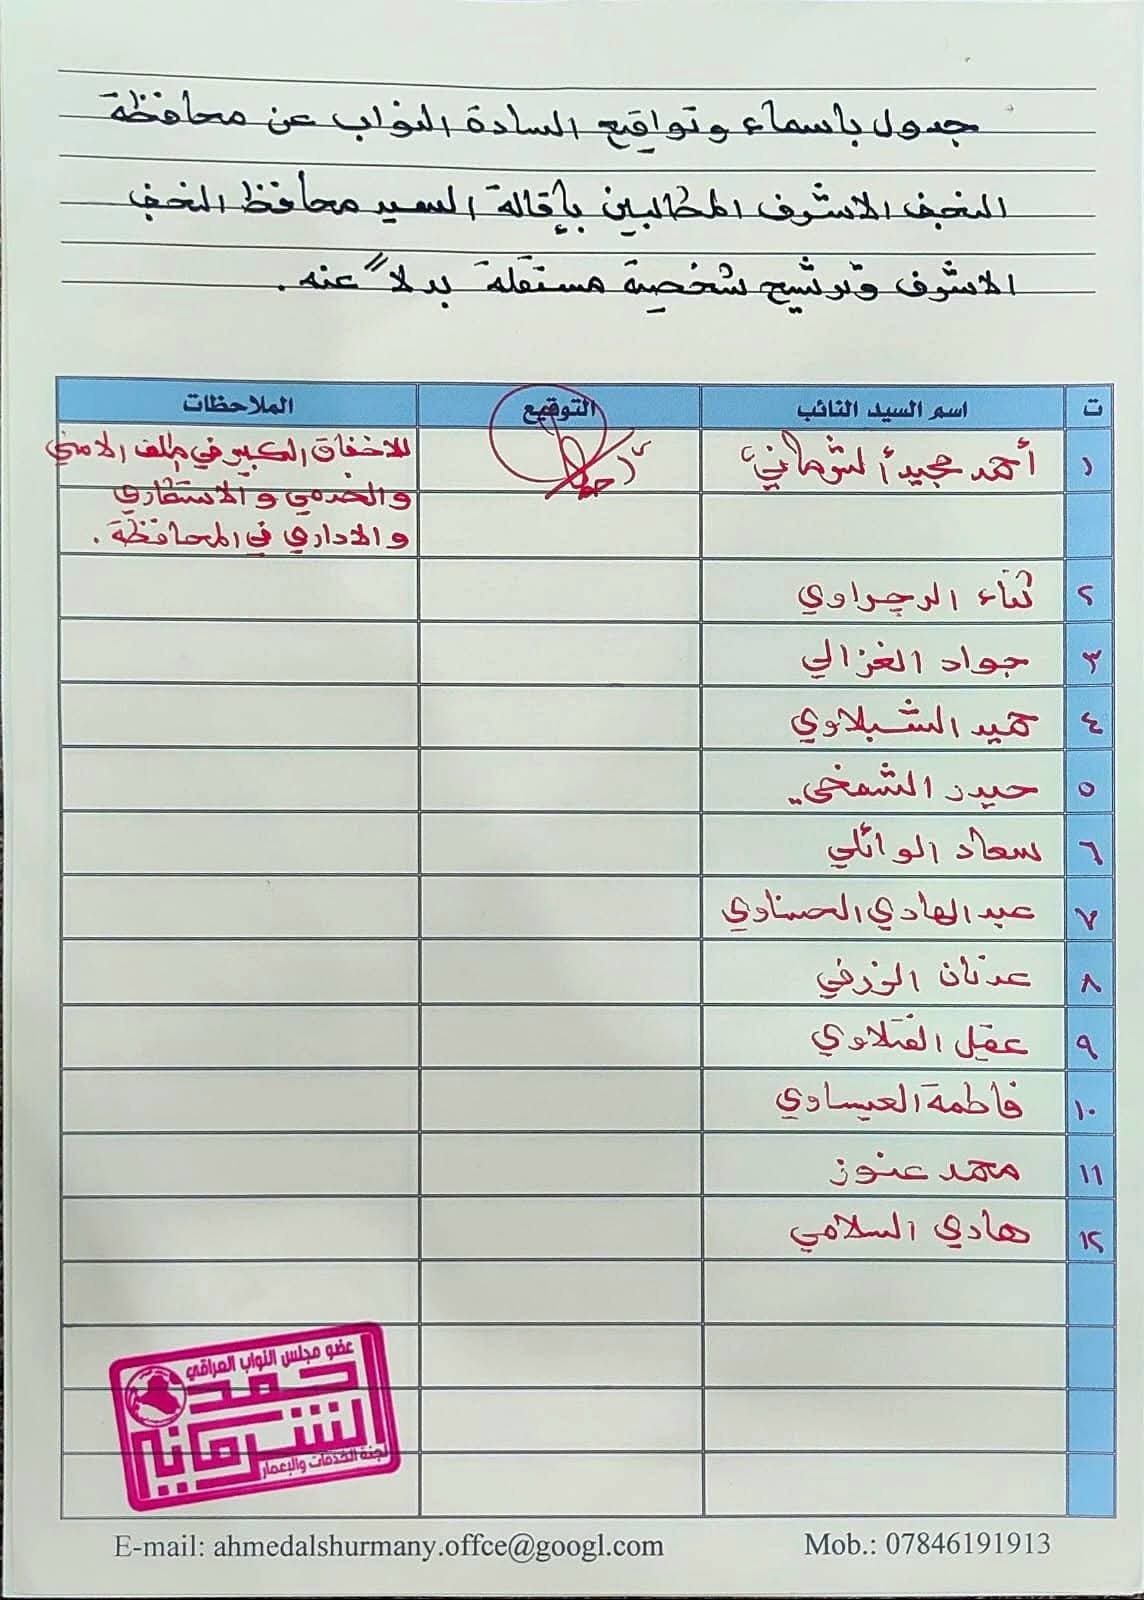 جدول باسماء وتواقيع السادة النواب عن محافظة
النجف الاشرف المطالبين بإقالة السيد محافظ النجف
الاشرف وترشيح شخصية مستقلة بدلاً عنه.
ت اسم السيد النائب التوقيع الملاحظات
١ أحمد مجيد الشرماني للاخفاق الكبير في الملف الامني
والخدمي والاستثماري
والاداري في المحافظة.
٢ ثناء الزجراوي
٣ جواد الغزالي
٤ حميد الشبلاوي
٥ حيدر الشمخي
٦ سعاد الوائلي
٧ عبد الهادي الحسناوي
٨ عدنان الزرفي
٩ عقيل الفتلاوي
١٠ فاطمة العيساوي
١١ محمد عنوز
١٢ هادي السلامي
عضو مجلس النواب العراقي
أحمد
الشرماني
لجنة الخدمات والإعمار
E-mail: ahmedalshurmany.offce@googl.com Mob.: 07846191913